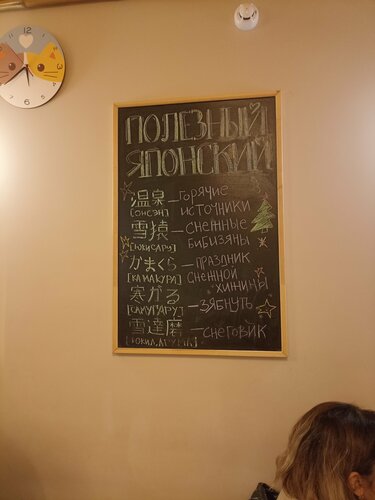 ПОЛЕЗНЫЙ
ЯПОНСКИЙ
温泉 — ГОРЯЧИЕ
[ОНСЭН] ИСТОЧНИКИ
雪猿 — СНЕЖНЫЕ
[ЮКИСАРУ] БИБИЗЯНЫ
かまくら — ПРАЗДНИК
[КАМАКУРА] СНЕЖНОЙ
ХИЖИНЫ
寒がる — ЗЯБНУТЬ
[САМУГАРУ]
雪達磨 — СНЕГОВИК
[ЮКИДАРУМА]